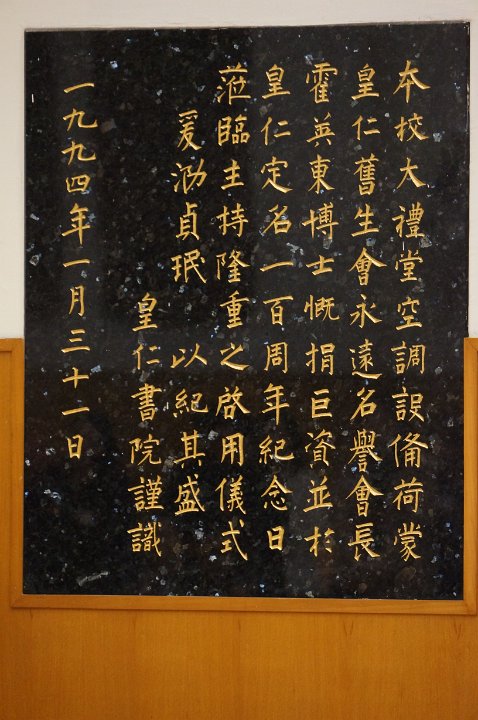 本校大禮堂空調設備荷蒙
皇仁舊生會永遠名譽會長
霍英東博士慨捐巨資並於
皇仁定名一百周年紀念日
蒞臨主持隆重之啓用儀式
爰泐貞珉 以紀其盛
皇仁書院謹識
一九九四年一月三十一日